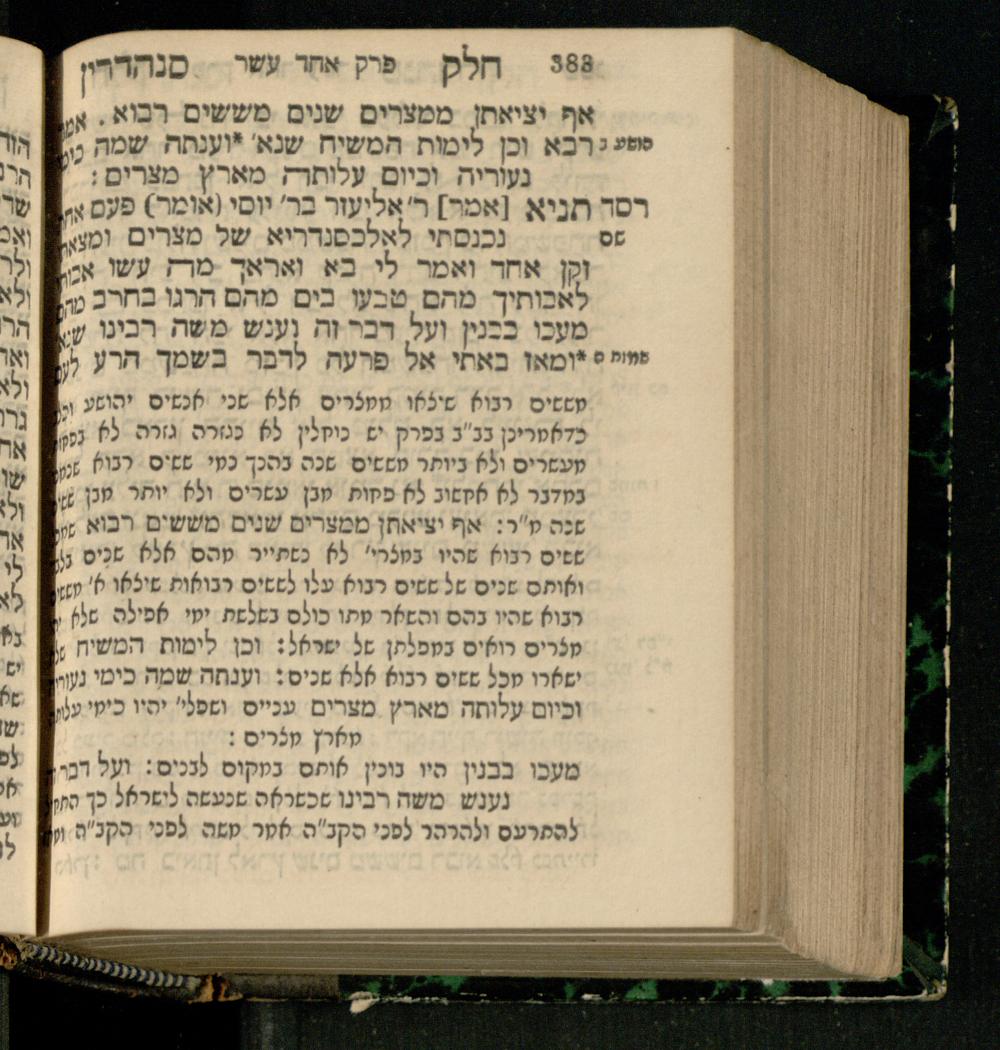 388 חלק פרק אחד עשר סנהדרין
אף יציאתן ממצרים שנים מששים רבוא . אמר
הושע ב רבא וכן לימות המשיח שנא' *וענתה שמה כימי
נעוריה וכיום עלותה מארץ מצרים :
רסד תניא [אמר] ר' אליעזר בר' יוסי (אומר) פעם אחת
שם נכנסתי לאלכסנדריא של מצרים ומצאתי
זקן אחד ואמר לי בא ואראך מה עשו אבותי
לאבותיך מהם טבעו בים מהם הרגו בחרב מהם
מעכו בבנין ועל דבר זה נענש משה רבינו שנא
שמות ה *ומאז באתי אל פרעה לדבר בשמך הרע לעם
מששים רבוא שיצאו ממצרים אלא שני אנשים יהושע וכלב
כדאמרינן בב"ב בפרק יש נוחלין לא נגזרה גזרה לא בפחות
מעשרים ולא ביותר מששים שנה בהנך כמי ששים רבוא שנמנו
במדבר לא אקשוב לא פחות מבן עשרים ולא יותר מבן ששים
שנה ע"ר: אף יציאתן ממצרים שנים מששים רבוא שמכל
ששים רבוא שהיו במצרי' לא נשתייר מהם אלא שנים בלבד
ואותם שנים של ששים רבוא עלו לששים רבואות שיצאו א' מששים
רבוא שהיו בהם והשאר מתו כולם בשלשת ימי אפילה שלא יהו
מצרים רואים במפלתן של ישראל: וכן לימות המשיח שלא
ישארו מכל ששים רבוא אלא שנים: וענתה שמה כימי נעוריה
וכיום עלותה מארץ מצרים ענייס ושפלי' יהיו כימי עלותה
מארץ מצרים :
מעכו בבנין היו נותנין אותם במקום לבנים: ועל דבר זה
נענש משה רבינו שכשראה שנעשה לישראל כך התחיל
להתרעם ולהרהר לפני הקב"ה אמר משה לפני הקב"ה ומאז